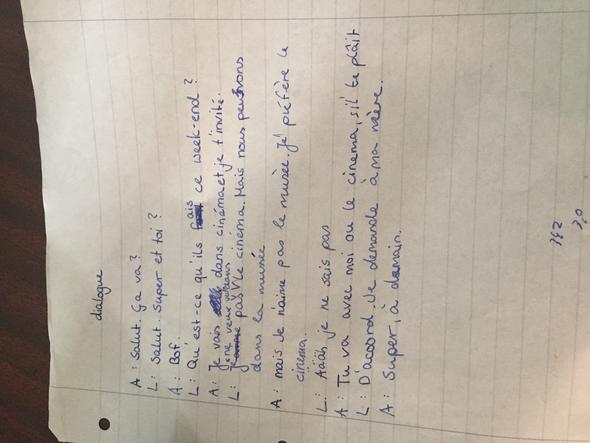 dialogue
A : Salut. Ça va ?
L : Salut. Super et toi ?
A : Bof.
L : Qu'est-ce qu'ils fais ce week-end ?
A : Je vais dans cinéma et je t'invité.
L : je ne veux pas le cinema. Mais nous peuvons
dans la musée
A : mais Je n'aime pas le musée. Je préfère le
cinema.
L : Aääh, je ne sais pas
A : Tu va avec moi ou le cinema, s'il te plâit
L : D'acoord. Je demande à ma mère.
A : Super, à demain.